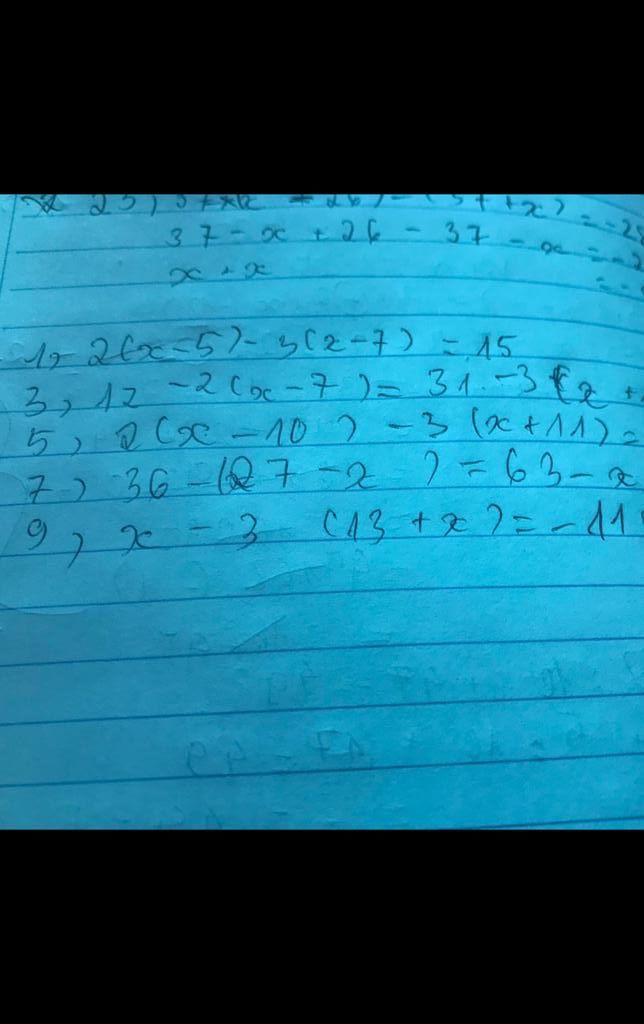 37 - x + 26 - 37 - x =
x + x
1, 2(x - 5) - 3(x - 7) = 15
3, 12 - 2(x - 7) = 31 - 3(x +
5, 2(x - 10) - 3(x + 11) =
7, 36 - (27 - x) = 63 - x
9, x - 3 (13 + x) = -11